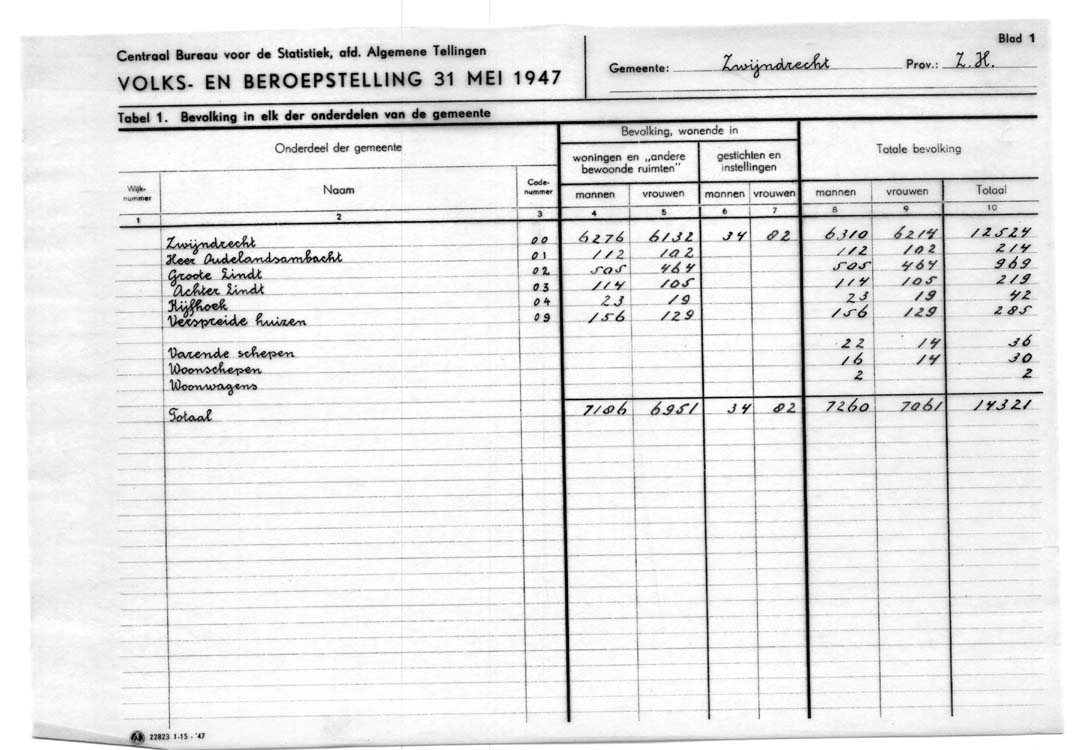 Centraal Bureau voor de Statistiek, afd. Algemene Tellingen
VOLKS- EN BEROEPSTELLING 31 MEI 1947
Blad 1
Gemeente: Zwijndrecht Prov.: Z.H.
Tabel 1. Bevolking in elk der onderdelen van de gemeente
Onderdeel der gemeente Bevolking, wonende in Totale bevolking
woningen en „andere bewoonde ruimten" gestichten en instellingen
Wijk-nummer Naam Code-nummer mannen vrouwen mannen vrouwen mannen vrouwen Totaal
1 2 3 4 5 6 7 8 9 10
Zwijndrecht 00 6276 6132 34 82 6310 6214 12524
Heer Oudelandsambacht 01 112 102 112 102 214
Groote Lindt 02 505 464 505 464 969
Achter Lindt 03 114 105 114 105 219
Kijfhoek 04 23 19 23 19 42
Verspreide huizen 09 156 129 156 129 285
Varende schepen 22 14 36
Woonschepen 16 14 30
Woonwagens 2 2
Totaal 7186 6951 34 82 7260 7061 14321
22823 1-15-'47